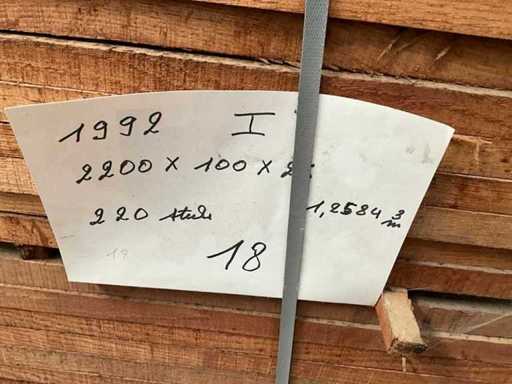 1992 I
2200 x 100 x
220 stuks 1,2584 m3
18
19